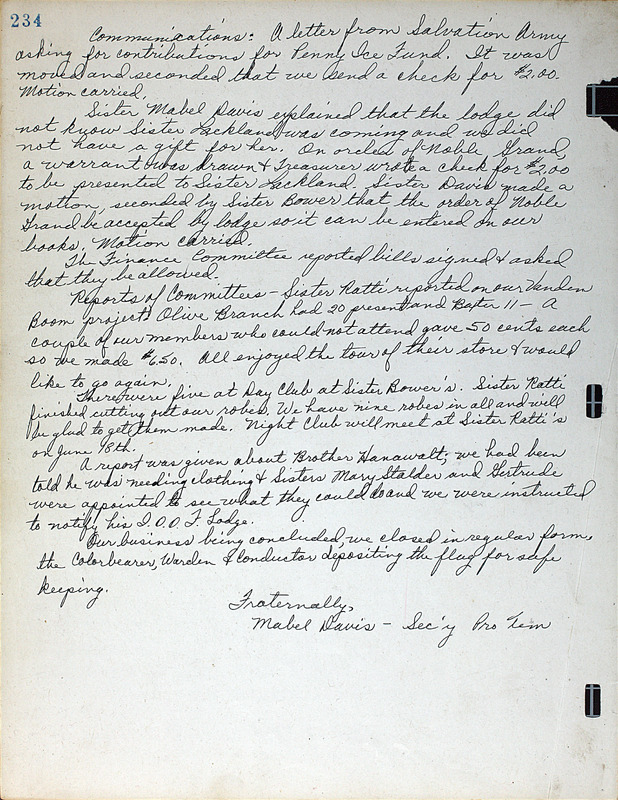 234
Communications: A letter from Salvation Army
asking for contributions for Penny Ice Fund. It was
moved and seconded that we send a check for $2.00.
Motion carried.
Sister Mabel Davis explained that the lodge did
not know Sister Lackland was coming and we did
not have a gift for her. On orders of Noble Grand,
a warrant was drawn & Treasurer wrote a check for $2.00
to be presented to Sister Lackland. Sister Davis made a
motton, seconded by Sister Bower that the order of Noble
Grand be accepted by lodge so it can be entered on our
books. Motion carried.
The Finance Committee reported bills signed & asked
that they be allowed.
Reports of Committees - Sister Ratti reported on our Vanden
Boom project. Olive Branch had 20 present and Baxter 11 - A
couple of our members who could not attend gave 50 cents each
so we made $6.50. All enjoyed the tour of their store & would
like to go again.
There were five at Day Club at Sister Bower's. Sister Ratti
finished cutting out our robes. We have nine robes in all and will
be glad to get them made. Night Club will meet at Sister Ratti's
on June 18th.
A report was given about Brother Hanawalt; we had been
told he was needing clothing & Sisters Mary Stalder and Gertrude
were appointed to see what they could do and we were instructed
to notify his I.O.O.F. Lodge.
Our business being concluded, we closed in regular form,
the Colorbearer, Warden & Conductor depositing the flag for safe
keeping.
Fraternally,
Mabel Davis - Sec'y Pro Tem